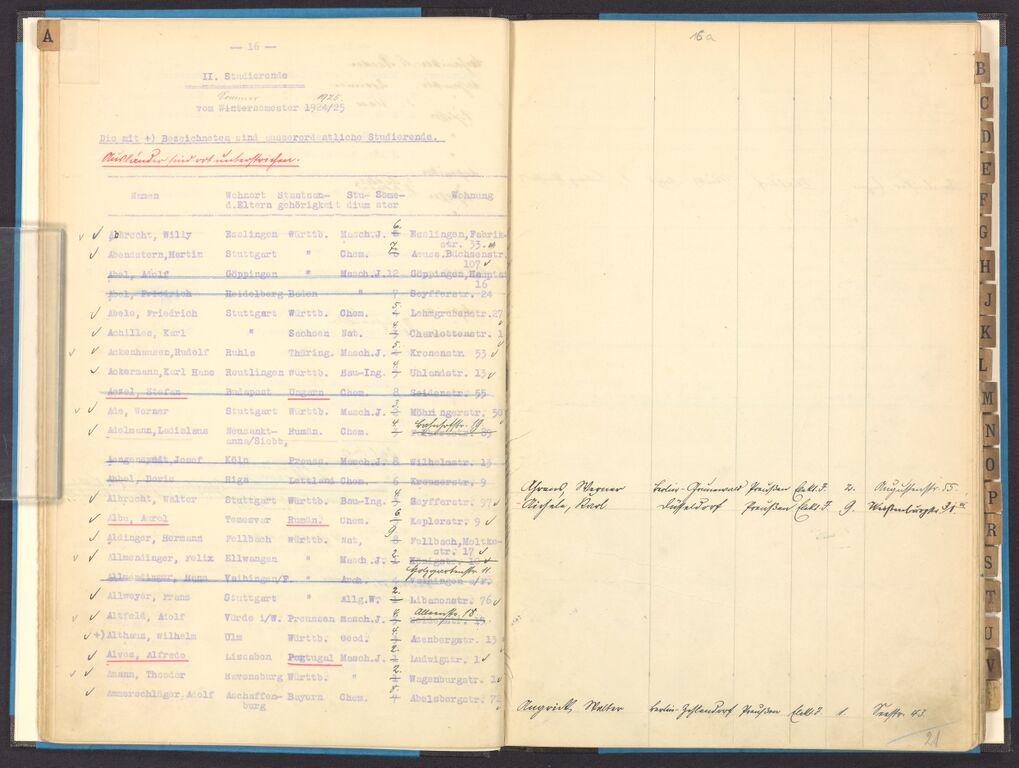 A
— 16 —
II. Studierende
Sommer 1925.
vom Wintersemester 1924/25
Die mit +) Bezeichneten sind ausserordentliche Studierende.
Ausländer sind rot unterstrichen.
Namen Wohnort Staatsan- Stu- Seme- Wohnung
d.Eltern gehörigkeit dium ster
Albrecht, Willy Esslingen Württb. Masch.J. 6. Esslingen,Fabrik-
str. 33.
Abendstern,Martin Stuttgart " Chem. 7. Aeuss.Büchsenstr.
107
Abel, Adolf Göppingen " Masch.J.12 Göppingen,Hauptst
16
Abel, Friedrich Heidelberg Baden " 7 Seyfferstr. 24
Abele, Friedrich Stuttgart Württb. Chem. 5. Lehmgrubenstr.27
Achilles, Karl " Sachsen Nat. 4 Charlottenstr. 1
Ackenhausen,Rudolf Ruhla Thüring. Masch.J. 5. Kronenstr. 53
Ackermann,Karl Hans Reutlingen Württb. Bau-Ing. 4 Uhlandstr. 13
Aczel, Stefan Budapest Ungarn Chem. 8 Seidenstr. 55
Ade, Werner Stuttgart Württb. Masch.J. 3. Möhringerstr. 50
Adelmann,Ladislaus Neusankt- Rumän. Chem. 4 Bahnhofstr. 19.
anna/Siebb,
Köln Preuss. Masch.J. 8 Wilhelmstr. 13
Doris Riga Lettland Chem. 6 Kreuserstr. 9
Albrecht, Walter Stuttgart Württb. Bau-Ing. 4 Seyfferstr. 97
Albu, Aurel Temesvar Rumän. Chem. 6 Keplerstr. 9
Aldinger, Hermann Fellbach Württb. Nat, 9 Fellbach,Moltke-
str. 17
Allmendinger, Felix Ellwangen " Masch.J. 2. Königstr.
Holzgartenstr. 11
Allmendinger, Hans Vaihingen/F. " Arch. 4 Vaihingen a/F.
Allweyer, Franz Stuttgart " Allg.W. 2. Libanonstr. 76
Altfeld, Adolf Vörde i/W. Preussen Masch.J. 4. Alleenstr. 18.
+) Althaus, Wilhelm Ulm Württb. Geod. 4 Azenbergstr. 13
Alves, Alfredo Lissabon Portugal Masch.J. 2. Ludwigstr. 1
Amann, Theodor Ravensburg Württb. " 2. Wagenburgstr. 1
Ammerschläger,Adolf Aschaffen- Bayern Chem. 8. Abelsbergstr. 72
burg
16a
Ahrens, Werner Berlin-Grunewald Preußen Elekt.J. 2. Augustenstr. 55
Aichele, Karl Düsseldorf Preußen Elekt.J. 9.
Angrick, Walter Berlin-Zehlendorf Preußen Elekt.J. 1. Seestr. 43
21
B
C
D
E
F
G
H
J
K
L
M
N
O
P
R
S
T
U
V